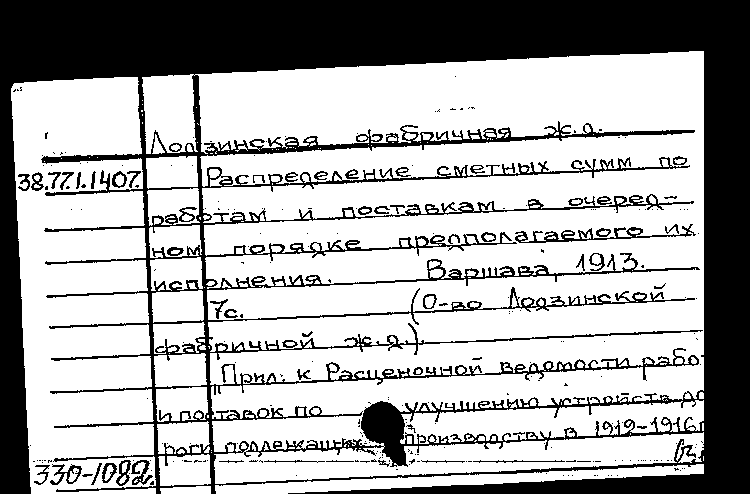 Лодзинская фабричная ж.д.
38.77.1.1407. Распределение сметных сумм по
работам и поставкам в очеред-
ном порядке предполагаемого их
исполнения. Варшава, 1913.
7с. (О-во Лодзинской
фабричной ж.д.).
"Прил. к Расценочной ведомости рабо
и поставок по улучшению устройств до
роги подлежащих производству в 1912-1916г
330-1082.